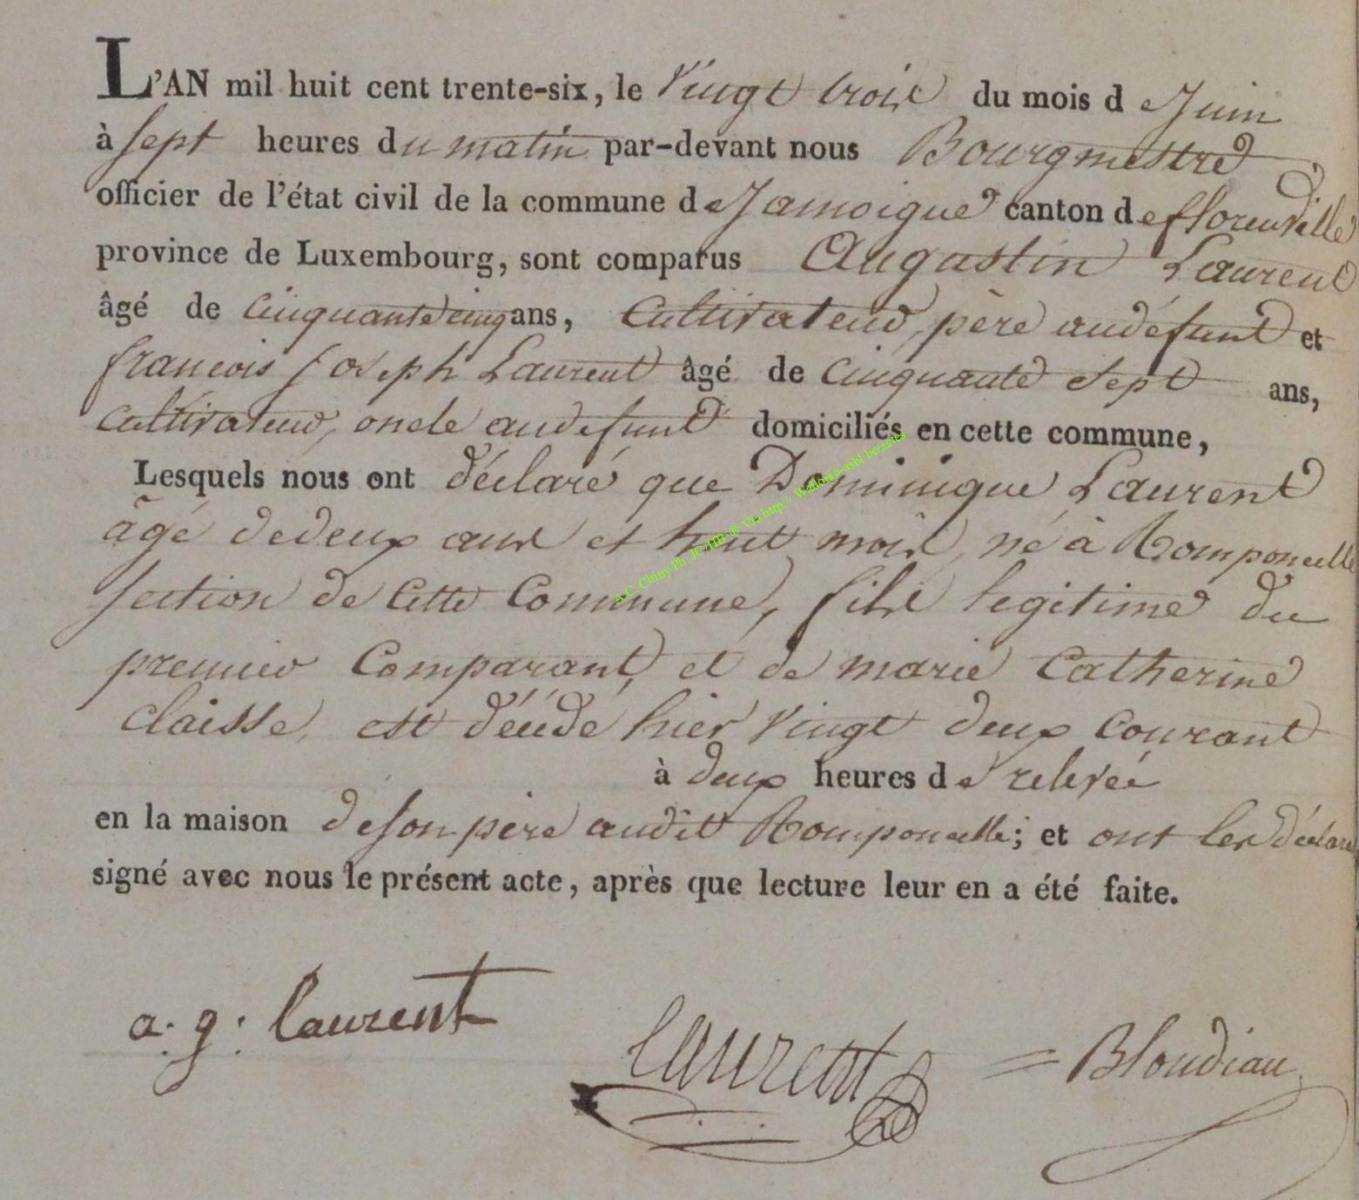 L'AN mil huit cent trente-six, le Vingt trois du mois de Juin
à sept heures du matin par-devant nous Bourgmestre
officier de l'état civil de la commune de Jamoigne canton de florenville
province de Luxembourg, sont comparus Augustin Laurent
âgé de cinquante cinq ans, Cultivateur, père au défunt et
francois Joseph Laurent âgé de cinquante sept ans,
cultivateur, oncle au defunt domiciliés en cette commune,
Lesquels nous ont déclaré que Dominique Laurent
âgé de deux ans et huit mois, né à Romponcelle
section de cette Commune, fils legitime du
premier Comparant, et de marie Catherine
claisse, est décédé hier vingt deux Courant
à deux heures de relevée
en la maison de son père audit Romponcelle; et ont les déclarans
signé avec nous le présent acte, après que lecture leur en a été faite.
a. g. laurent
Laurent
Blondiau